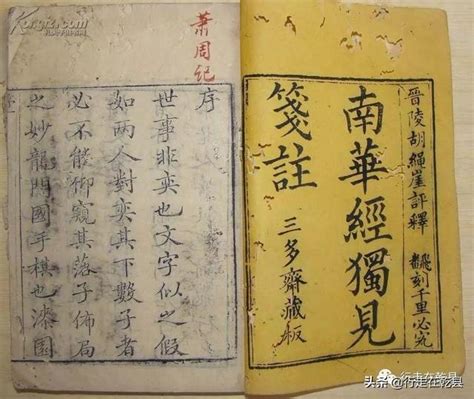 晉陵胡繩崖評釋
翻刻千里必究
南華經獨見
箋註
三多齋藏板
萧周纪
序
世事非奕也文字似之假
如两人對奕其下數子者
必不能仰窺其落子佈局
之妙龍門國手棋也漆園
行走在乾县
头条 @行走在乾县